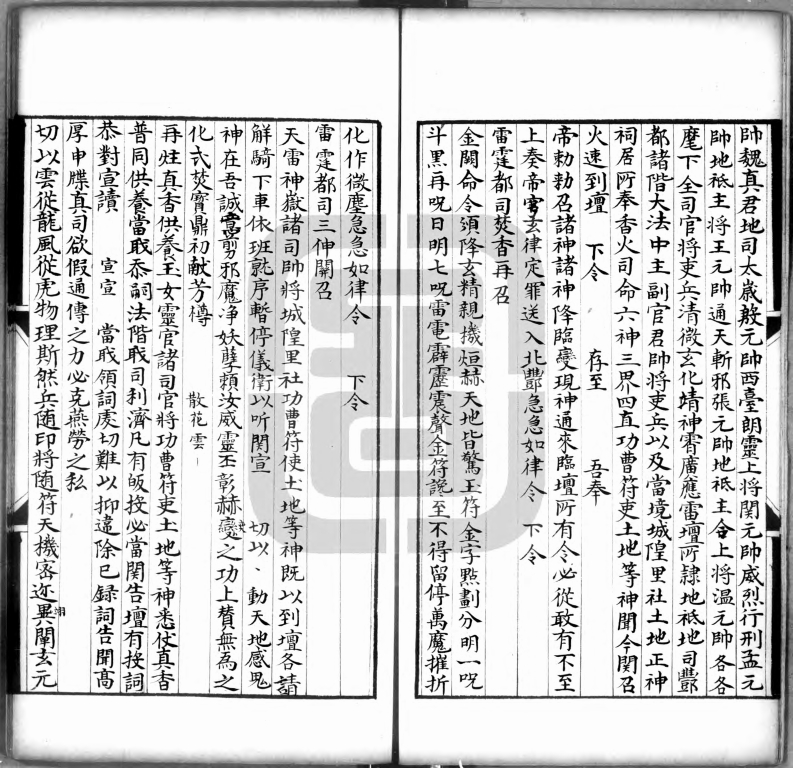 帥魏真君地司太歲殷元帥西臺朗靈上將関元帥威烈行刑孟元
帥地祇主將王元帥通天斬邪張元帥地祇主令上將温元帥各各
麾下全司官將吏兵清微玄化靖神霄廣應雷壇所隷地祇地司酆
都諸階大法中主副官君帥將吏兵以及當境城隍里社土地正神
祠居所奉香火司命六神三界四直功曹符吏土地等神聞今関召
火速到壇　下令　　存至　　吾奉
帝勅勅召諸神諸神降臨變現神通來臨壇所有令必從敢有不至
上奏帝玄律定罪送入北酆急急如律令　下令
雷霆都司焚香再召
金闕命令須降玄精親機烜赫天地皆驚玉符金字㸃劃分明一呪
斗黒再呪日明七呪雷電霹靂震聲金符讒至不得留停萬魔摧折
化作微塵急急如律令　　下令
雷霆都司三伸開召
天雷神嶽諸司帥將城隍里社功曹符使土地等神既以到壇各請
觧騎下車依班就序暫停儀衛以听関宣　　切以、動天地感鬼
神在吾誠當剪邪魔净妖孽賴汝威靈丕彰赫奕之功上賛無為之
化式焚寳鼎初献芳樽　　散花雲
再炷真香供養玉女靈官諸司官將功曹符吏土地等神悉仗真香
普同供養當戢忝嗣法階戢司利濟凡有皈投必當関告壇有投詞
恭對宣讀　宣宣　當戢領詞虔切難以抑違除已録詞告開髙
厚申牒真司欲假通傳之力必克燕勞之私
切以雲從龍風從虎物理斯然兵随印將随符天機宻迩異闡玄元